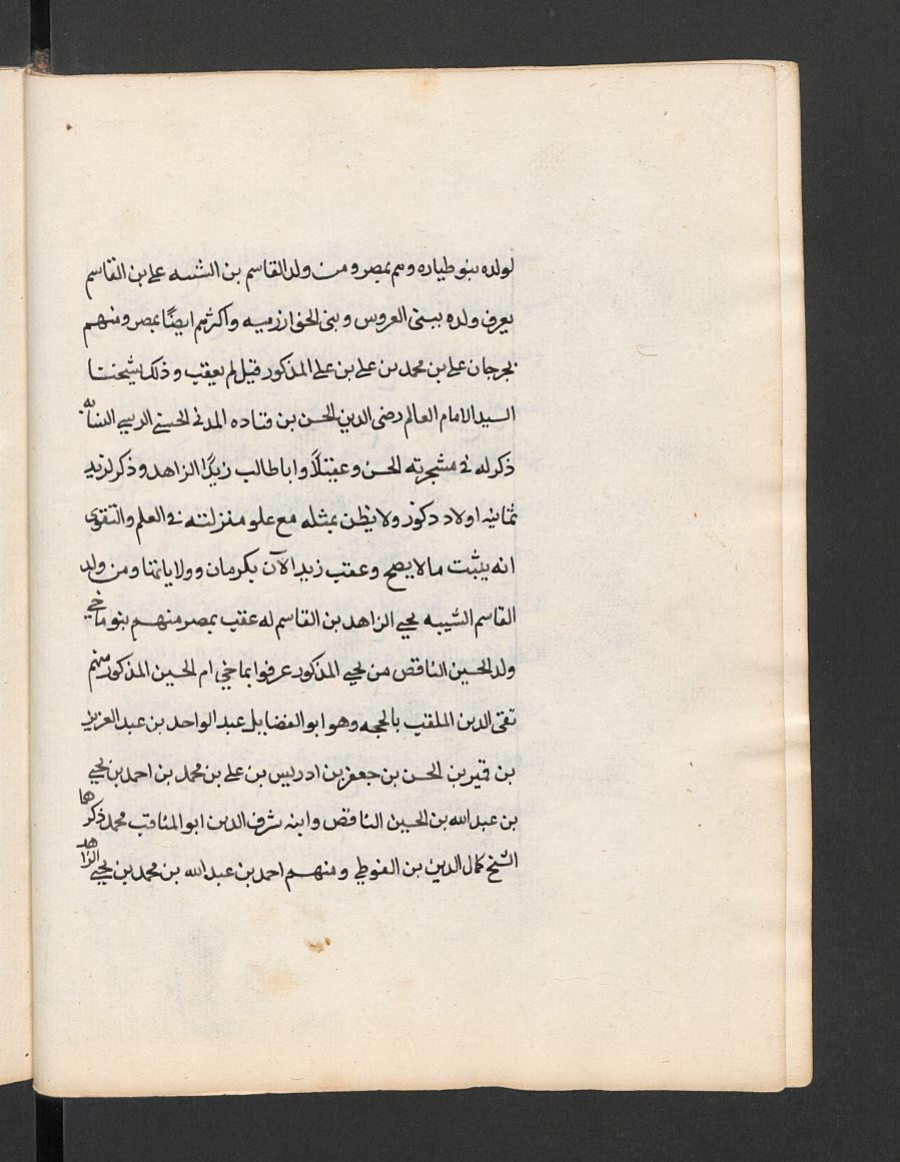 لولده بنو طياره وهم بمصر ومن ولد القاسم بن الشبيه علي بن القاسم
يعرف ولده ببنى العروس وبنى الخوارزميه واكثرهم ايضًا بمصر ومنهم
بجرجان علي بن محمد بن علي بن علي المذكور قيل لم يعقب وذكر شيخنا
السيد الامام العالم رضى الدين الحسن بن قتاده المدنى الحسنى الرسي النسابه
ذكر له فى مشجرته الحسن وعقيلاً وابا طالب زيدًا الزاهد وذكر لزيد
ثمانيه اولاد ذكور ولا يظن بمثله مع علو منزلته فى العلم والتقوى
انه يثبت ما لا يصح وعقب زيد الآن بكرمان وولاياتها ومن ولد
القاسم الشبيه يحيى الزاهد بن القاسم له عقب بمصر منهم بنو ماخي
ولد الحسين الناقص من يحيى المذكور عرفوا بماخي ام الحسين المذكور منهم
تقى الدين الملقب بالحجه وهو ابو الفضايل عبد الواحد بن عبد العزيز
بن قمير بن الحسن بن جعفر بن ادريس بن علي بن محمد بن احمد بن يحيى
بن عبد الله بن الحسين الناقص وابنه شرف الدين ابو المناقب محمد ذكرهما
الشيخ كمال الدين بن الفوطي ومنهم احمد بن عبد الله بن محمد بن يحيى الزاهد